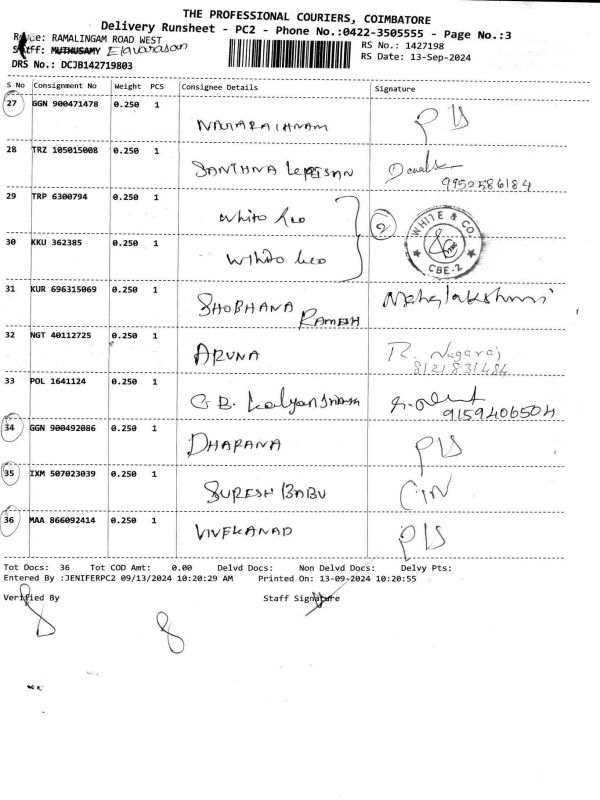 THE PROFESSIONAL COURIERS, COIMBATORE
Delivery Runsheet - PC2 - Phone No.:0422-3505555 - Page No.:3
RAMALINGAM ROAD WEST
RS No.: 1427198
MUTHUSAMY Elavarasan
RS Date: 13-Sep-2024
DRS No.: DCJB142719803
S No Consignment No Weight PCS Consignee Details Signature
27 GGN 900471478 0.250 1
NAGARATHNAM
28 TRZ 105015008 0.250 1
SANTHNA
9952586184
29 TRP 6300794 0.250 1
White Leo
2
WHITE & CO.
CBE-2
30 KKU 362385 0.250 1
White Leo
31 KUR 696315069 0.250 1
SHOBHANA RAMESH Mahalakshmi
32 NGT 40112725 0.250 1
ARUNA R. Nagaraj
8121831484
33 POL 1641124 0.250 1
G B.
9159406504
34 GGN 900492086 0.250 1
DHARANA
35 IXM 507023039 0.250 1
SURESH BABU
36 MAA 866092414 0.250 1
VIVEKANAD
Tot Docs: 36 Tot COD Amt: 0.00 Delvd Docs: Non Delvd Docs: Delvy Pts:
Entered By :JENIFERPC2 09/13/2024 10:20:29 AM Printed On: 13-09-2024 10:20:55
Verified By Staff Signature